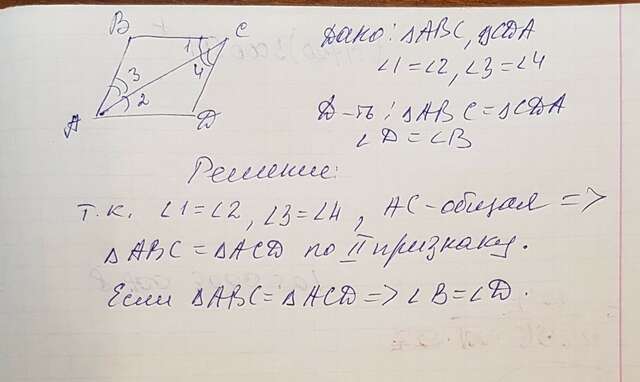 B C
1 4
3 2
A D
Дано: △ABC, △CDA
∠1=∠2, ∠3=∠4
Д-ть: △ABC=△CDA
∠D=∠B
Решение:
т.к. ∠1=∠2, ∠3=∠4, AC-общая =>
△ABC=△ACD по II признаку.
Если △ABC=△ACD=>∠B=∠D.